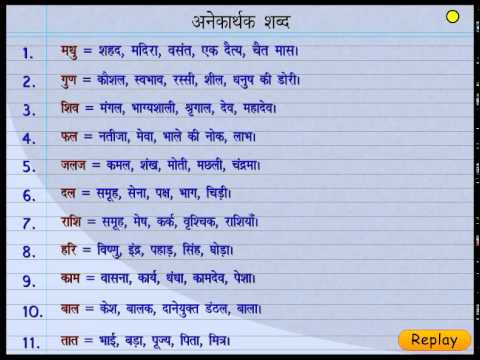 अनेकार्थक शब्द
1. मधु = शहद, मदिरा, वसंत, एक दैत्य, चैत मास।
2. गुण = कौशल, स्वभाव, रस्सी, शील, धनुष की डोरी।
3. शिव = मंगल, भाग्यशाली, श्रृगाल, देव, महादेव।
4. फल = नतीजा, मेवा, भाले की नोक, लाभ।
5. जलज = कमल, शंख, मोती, मछली, चंद्रमा।
6. दल = समूह, सेना, पक्ष, भाग, चिड़ी।
7. राशि = समूह, मेष, कर्क, वृश्चिक, राशियाँ।
8. हरि = विष्णु, इंद्र, पहाड़, सिंह, घोड़ा।
9. काम = वासना, कार्य, धंधा, कामदेव, पेशा।
10. बाल = केश, बालक, दानेयुक्त डंठल, बाला।
11. तात = भाई, बड़ा, पूज्य, पिता, मित्र।
Replay